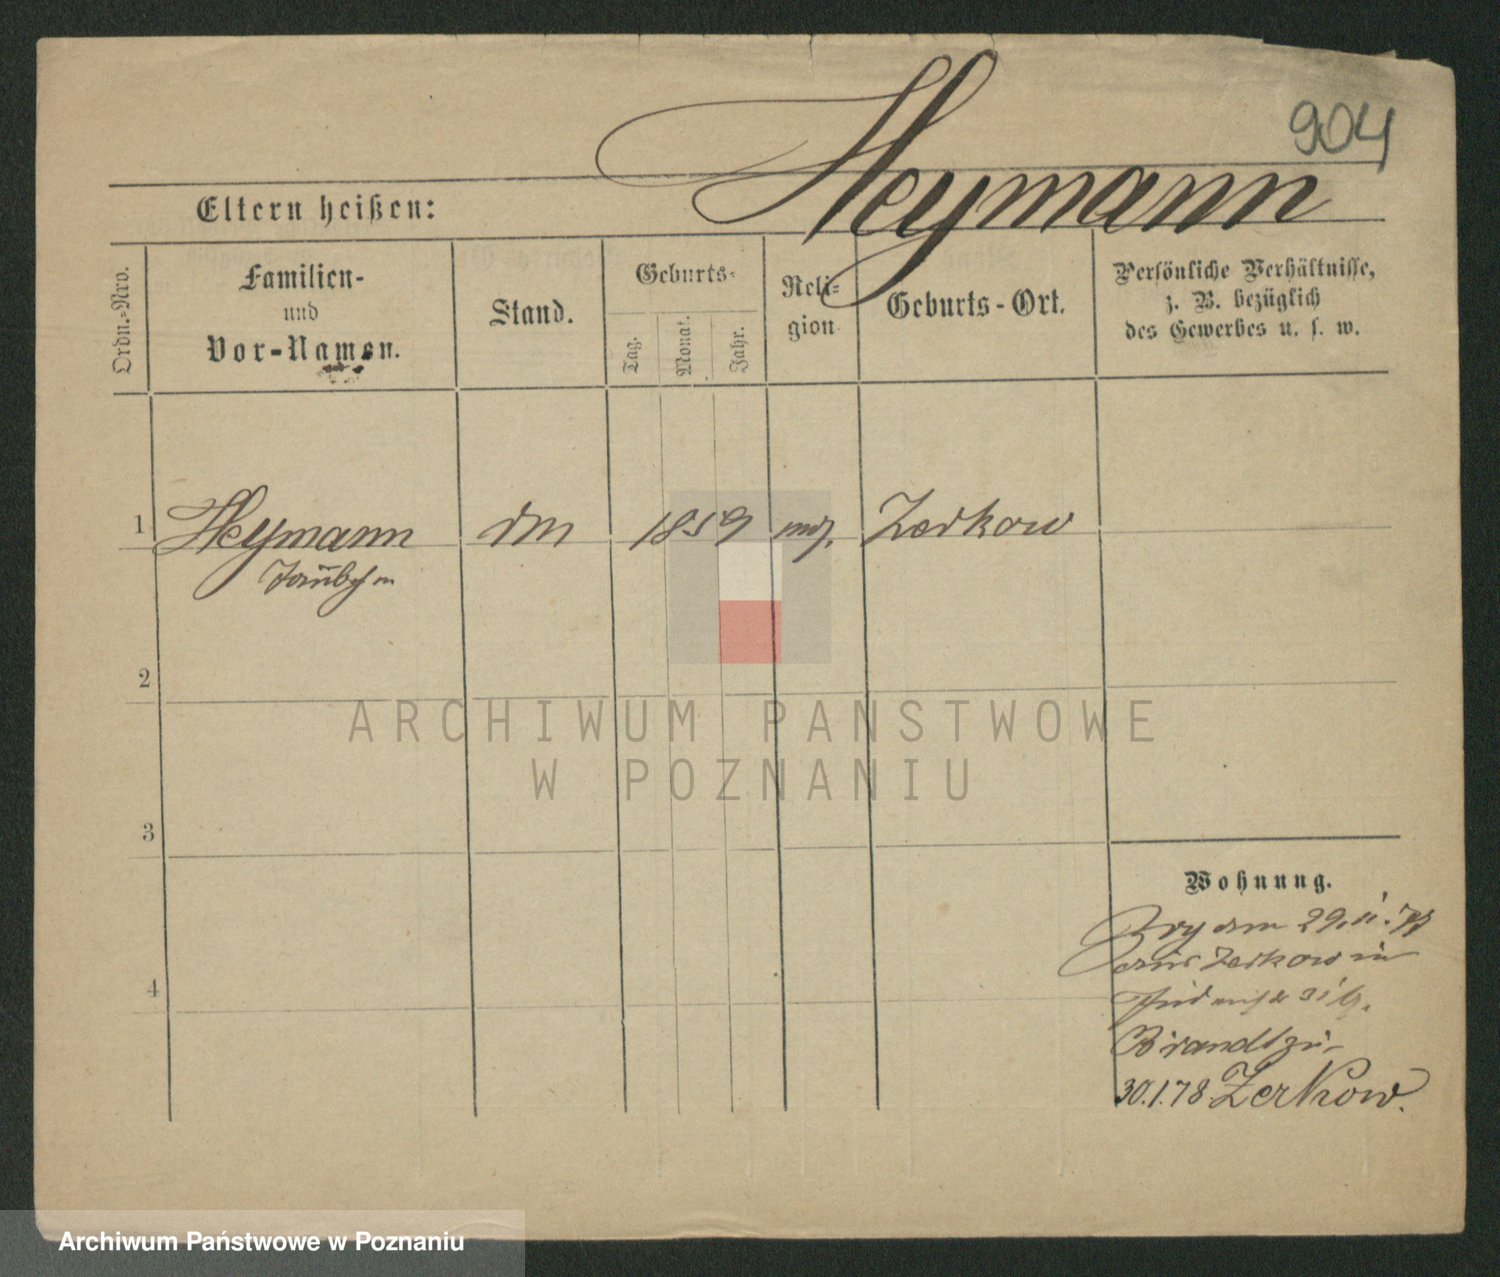 904
Heymann
Eltern heißen:
Ordn.-Nro.
Familien-
und
Vor-Namen.
Stand.
Geburts-
Tag.
Monat.
Jahr.
Reli-
gion
Geburts-Ort.
Persönliche Verhältnisse,
z. B. bezüglich
des Gewerbes u. s. w.
1 Heymann 1859 Zerkow
2
3
4
Wohnung.
am 29.11.
aus Zerkow in
Brandt
30.1.78 Zerkow.
ARCHIWUM PAŃSTWOWE
W POZNANIU
Archiwum Państwowe w Poznaniu